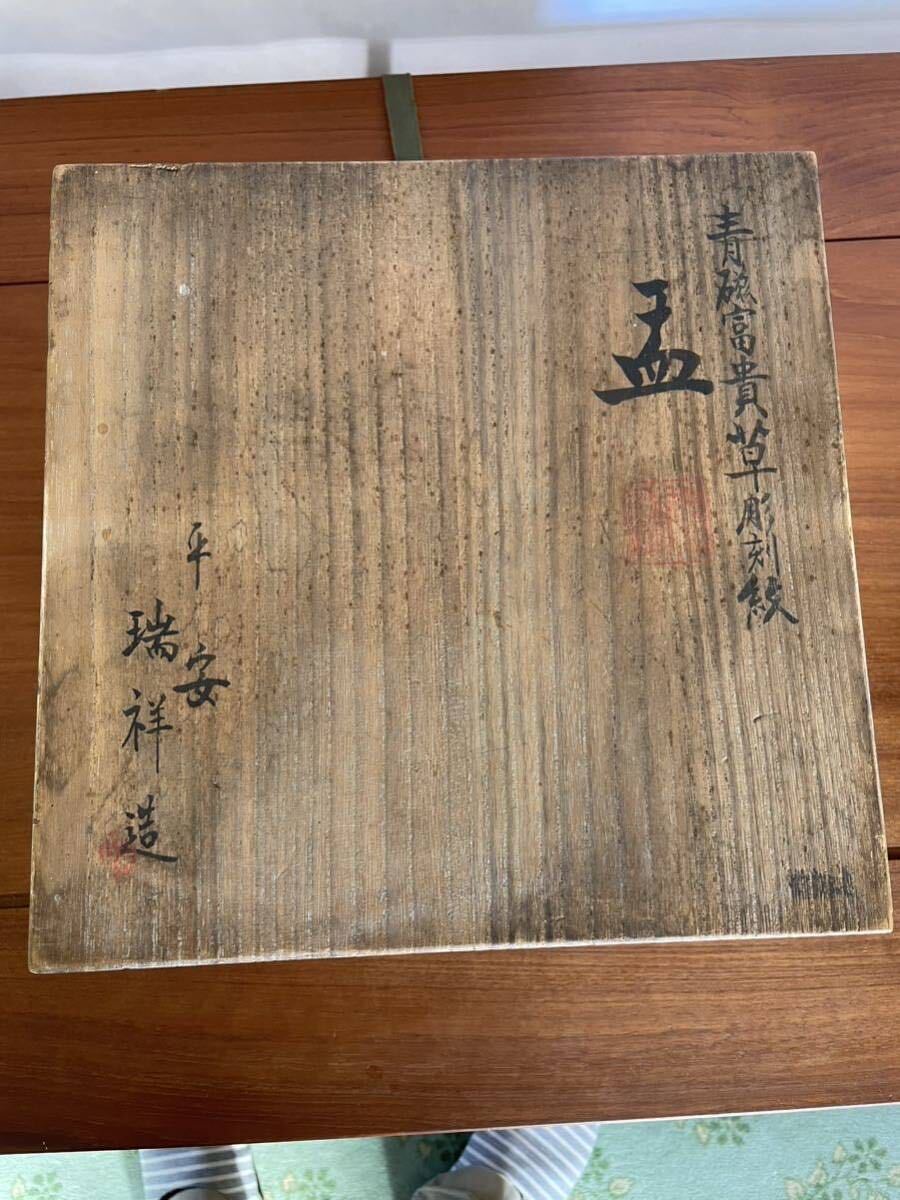 青磁富貴草彫刻紋
盂
平安
瑞祥造